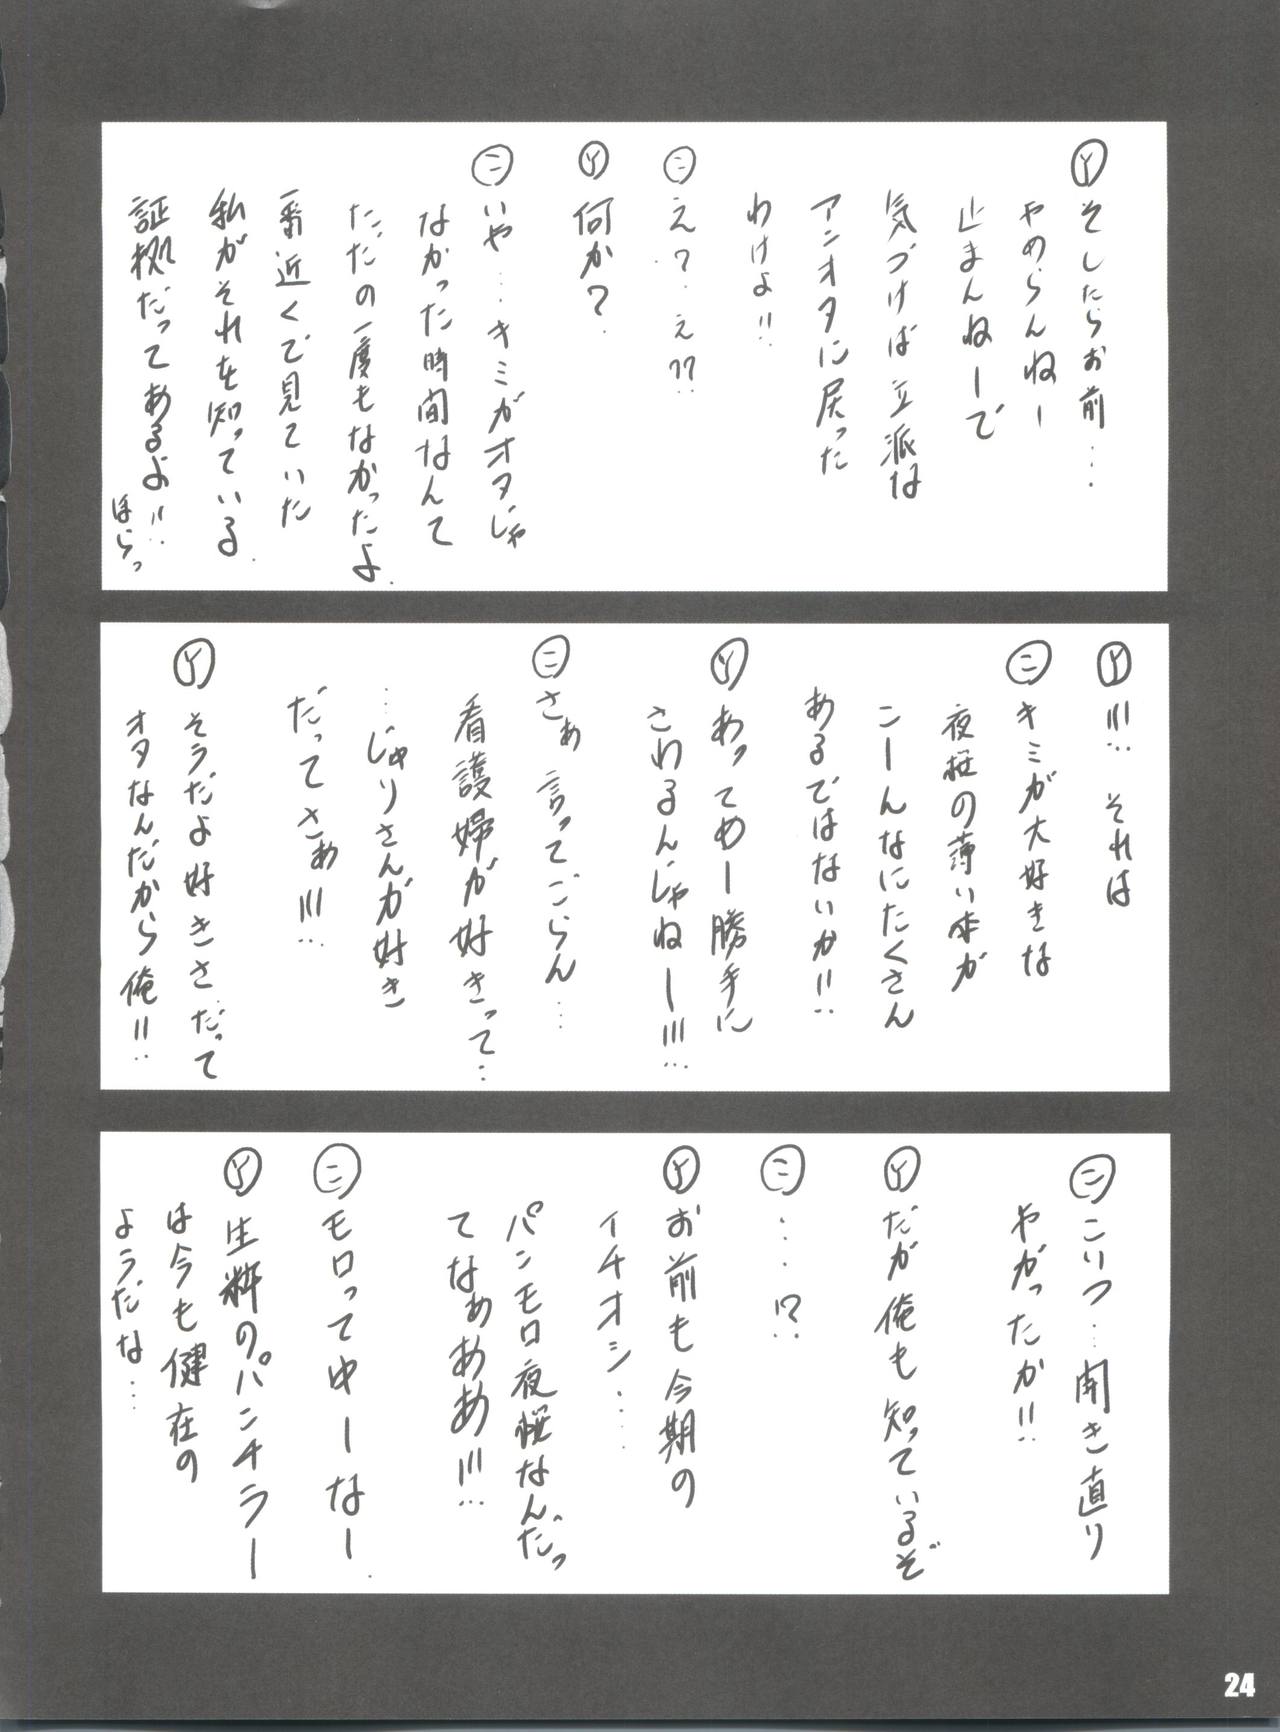 Ⓨそしたらお前…
やめらんねー
止まんねーで
気づけば立派な
アンオタに戻った
わけよ!!
㊁え?…え??
Ⓨ何か?
㊁いや…キミがオタじゃ
なかった時間なんて
ただの一度もなかったよ.
一番近くで見ていた
私がそれを知っている.
証拠だってあるよ!!
ほらっ
Ⓨ!!!それは
㊁キミが大好きな
夜桜の薄い本が
こーんなにたくさん
あるではないか!!
Ⓨあってめー勝手に
さわるんじゃねー!!!
㊁さぁ言ってごらん…
看護婦が好きって…
…じゅりさんが好き
だってさぁ!!!
Ⓨそうだよ好きさだって
オタなんだから俺!!
㊁こいつ…開き直り
やがったか!!
Ⓨだが俺も知っているぞ
㊁…!?
Ⓨお前も今期の
イチオシ…
パンモロ夜桜なんだっ
てなぁああ!!!
㊁モロってゆーなー.
Ⓨ生粋のパンチラー
は今も健在の
ようだな…
24